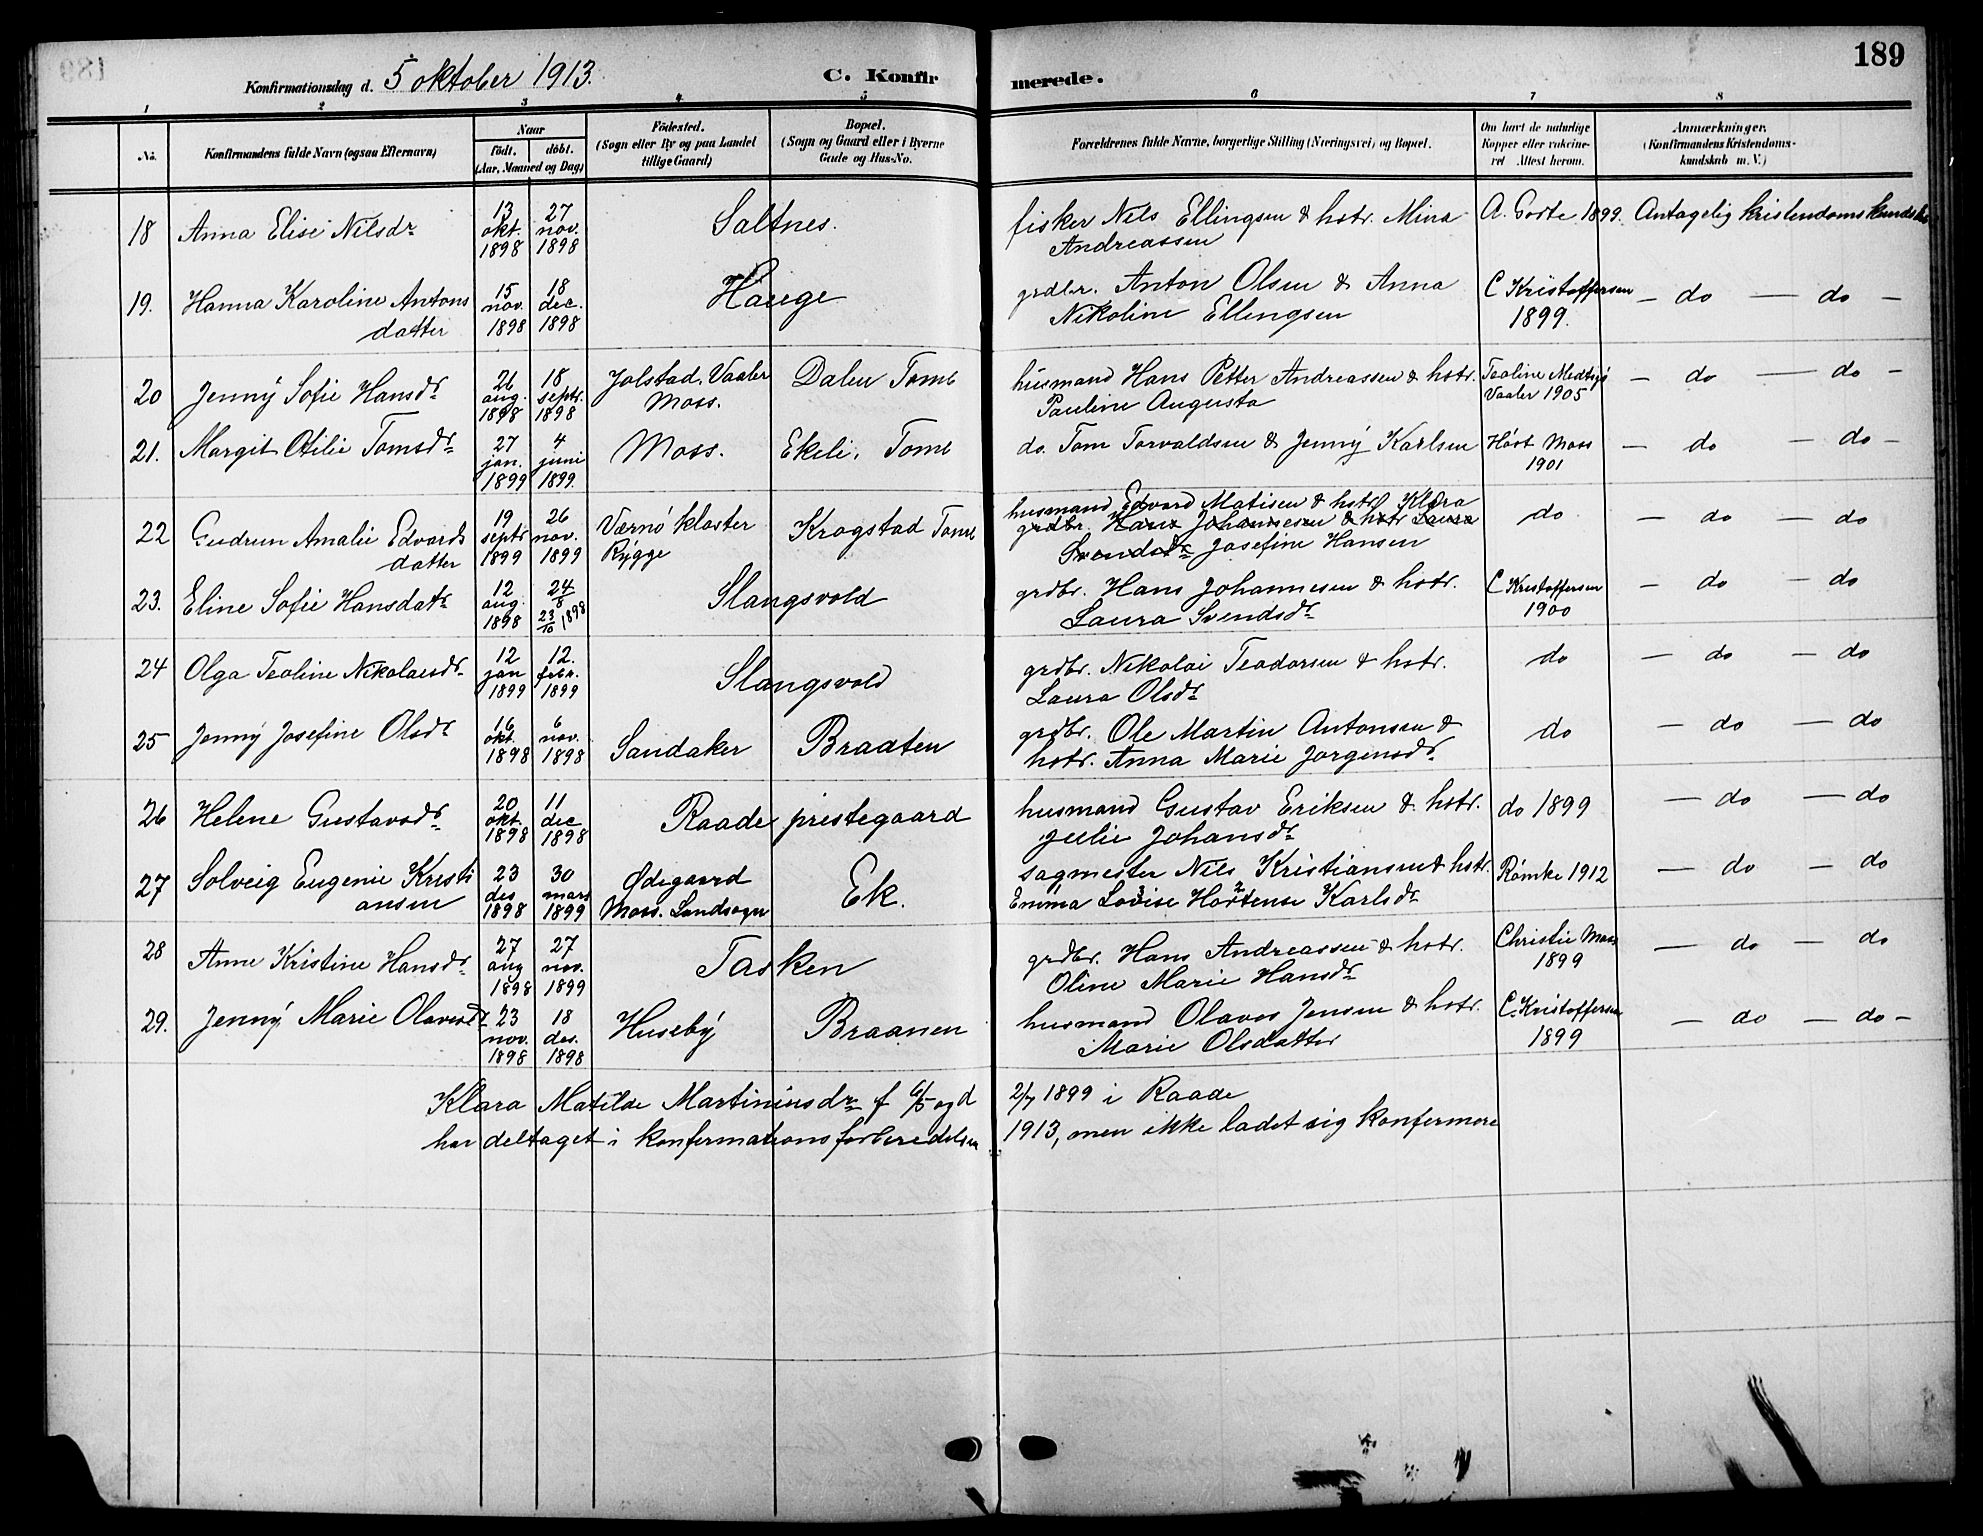 189
Konfirmationsdag d. 5 oktober 1913. C. Konfirmerede.
1 2 3 4 5 6 7 8
No. Konfirmandens fulde Navn (ogsaa Efternavn) Naar født. døbt. (Aar, Maaned og Dag) Fødested. (Sogn eller By og paa Landet tillige Gaard) Bopæl. (Sogn og Gaard eller i Byerne Gade og Hus-No. Forældrenes fulde Navne, borgerlige Stilling (Næringsvei) og Bopæl. Om havt de naturlige Kopper eller vakcineret Attest herom. Anmærkninger. (Konfirmandens Kristendomskundskab m. V.)
18 Anna Elise Nilsdr 13 okt. 1898 27 nov. 1898 Saltnes. fisker Nils Ellingsen & hstr. Mina Andreassen A. Gorte 1899. Antagelig kristendomskundskab
19. Hanna Karoline Antonsdatter 15 nov. 1898 18 dec. 1898 Hauge grdbr. Anton Olsen & Anna Nikoline Ellingsen C Kristoffersen 1899. — do — do —
20 Jenny Sofie Hansdr 26 aug. 1898 18 septr. 1898 Jolstad, Vaaler Moss. Dalen Tomb husmand Hans Petter Andreassen & hstr. Pauline Augusta Teoline Vaaler 1905 — do — do —
21. Margit Otilie Tomsdr 27 jan. 1899 4 juni 1899. Moss. Ekeli, Tomb do. Tom Torvaldsen & Jenny Karlsen Høst Moss 1901 — do — do —
22 Gudrun Amalie Edvardsdatter 19 septr 1899 26 nov. 1899 Værnø kloster Rygge Krogstad Tomb husmand Edvard Matisen & hstr. Klara
grdbr. Hans Johannesen & hstr Laura
Svendsdr Josefine Hansen do — do — do
23. Eline Sofie Hansdatr 12 aug. 1898 24/8 23/10 1898 Slangsvold grdbr. Hans Johannesen & hstr. Laura Svendsdr C Kristoffersen 1900 — do — do
24 Olga Teoline Nikolaisdr 12 jan 1899 12. febr. 1899 Slangsvold grdbr. Nikolai Teodorsen & hstr. Laura Olsdr do — do — do
25 Jenny Josefine Olsdr 16 okt. 1898 6 nov. 1898 Sandaker Braaten grdbr. Ole Martin Antonsen & hstr. Anna Marie Jørgensdr do — do — do
26 Helene Gustavsdr 20 okt. 1898 11 dec 1898 Raade prestegaard husmand Gustav Eriksen & hstr. Julie Johansdr do 1899 — do — do
27 Solveig Eugenie Kristiansen 23 des 1898 30 mars 1899 Ødegaard Moss. Landsogn Ek. sagmester Nils Kristiansen & hstr. Emma Lovise Hortense Karlsdr Rømke 1912 — do — do
28 Anne Kristine Hansdr 27 aug 1898 27 nov. 1899 Tasken grdbr. Hans Andreassen & hstr. Oline Marie Hansdr Christie Moss 1899 — do — do
29. Jenny Marie Olavesdr 23 nov. 1898 18 des. 1898 Huseby Braanen husmand Olaves Jensen & hstr. Marie Olsdatter C. Kristoffersen 1899 — do — do —
Klara Matilde Martiniusdr f 6/5 og d 2/7 1899 i Raade
har deltaget i konfermationsforberedelsen 1913, men ikke ladet sig konfermere